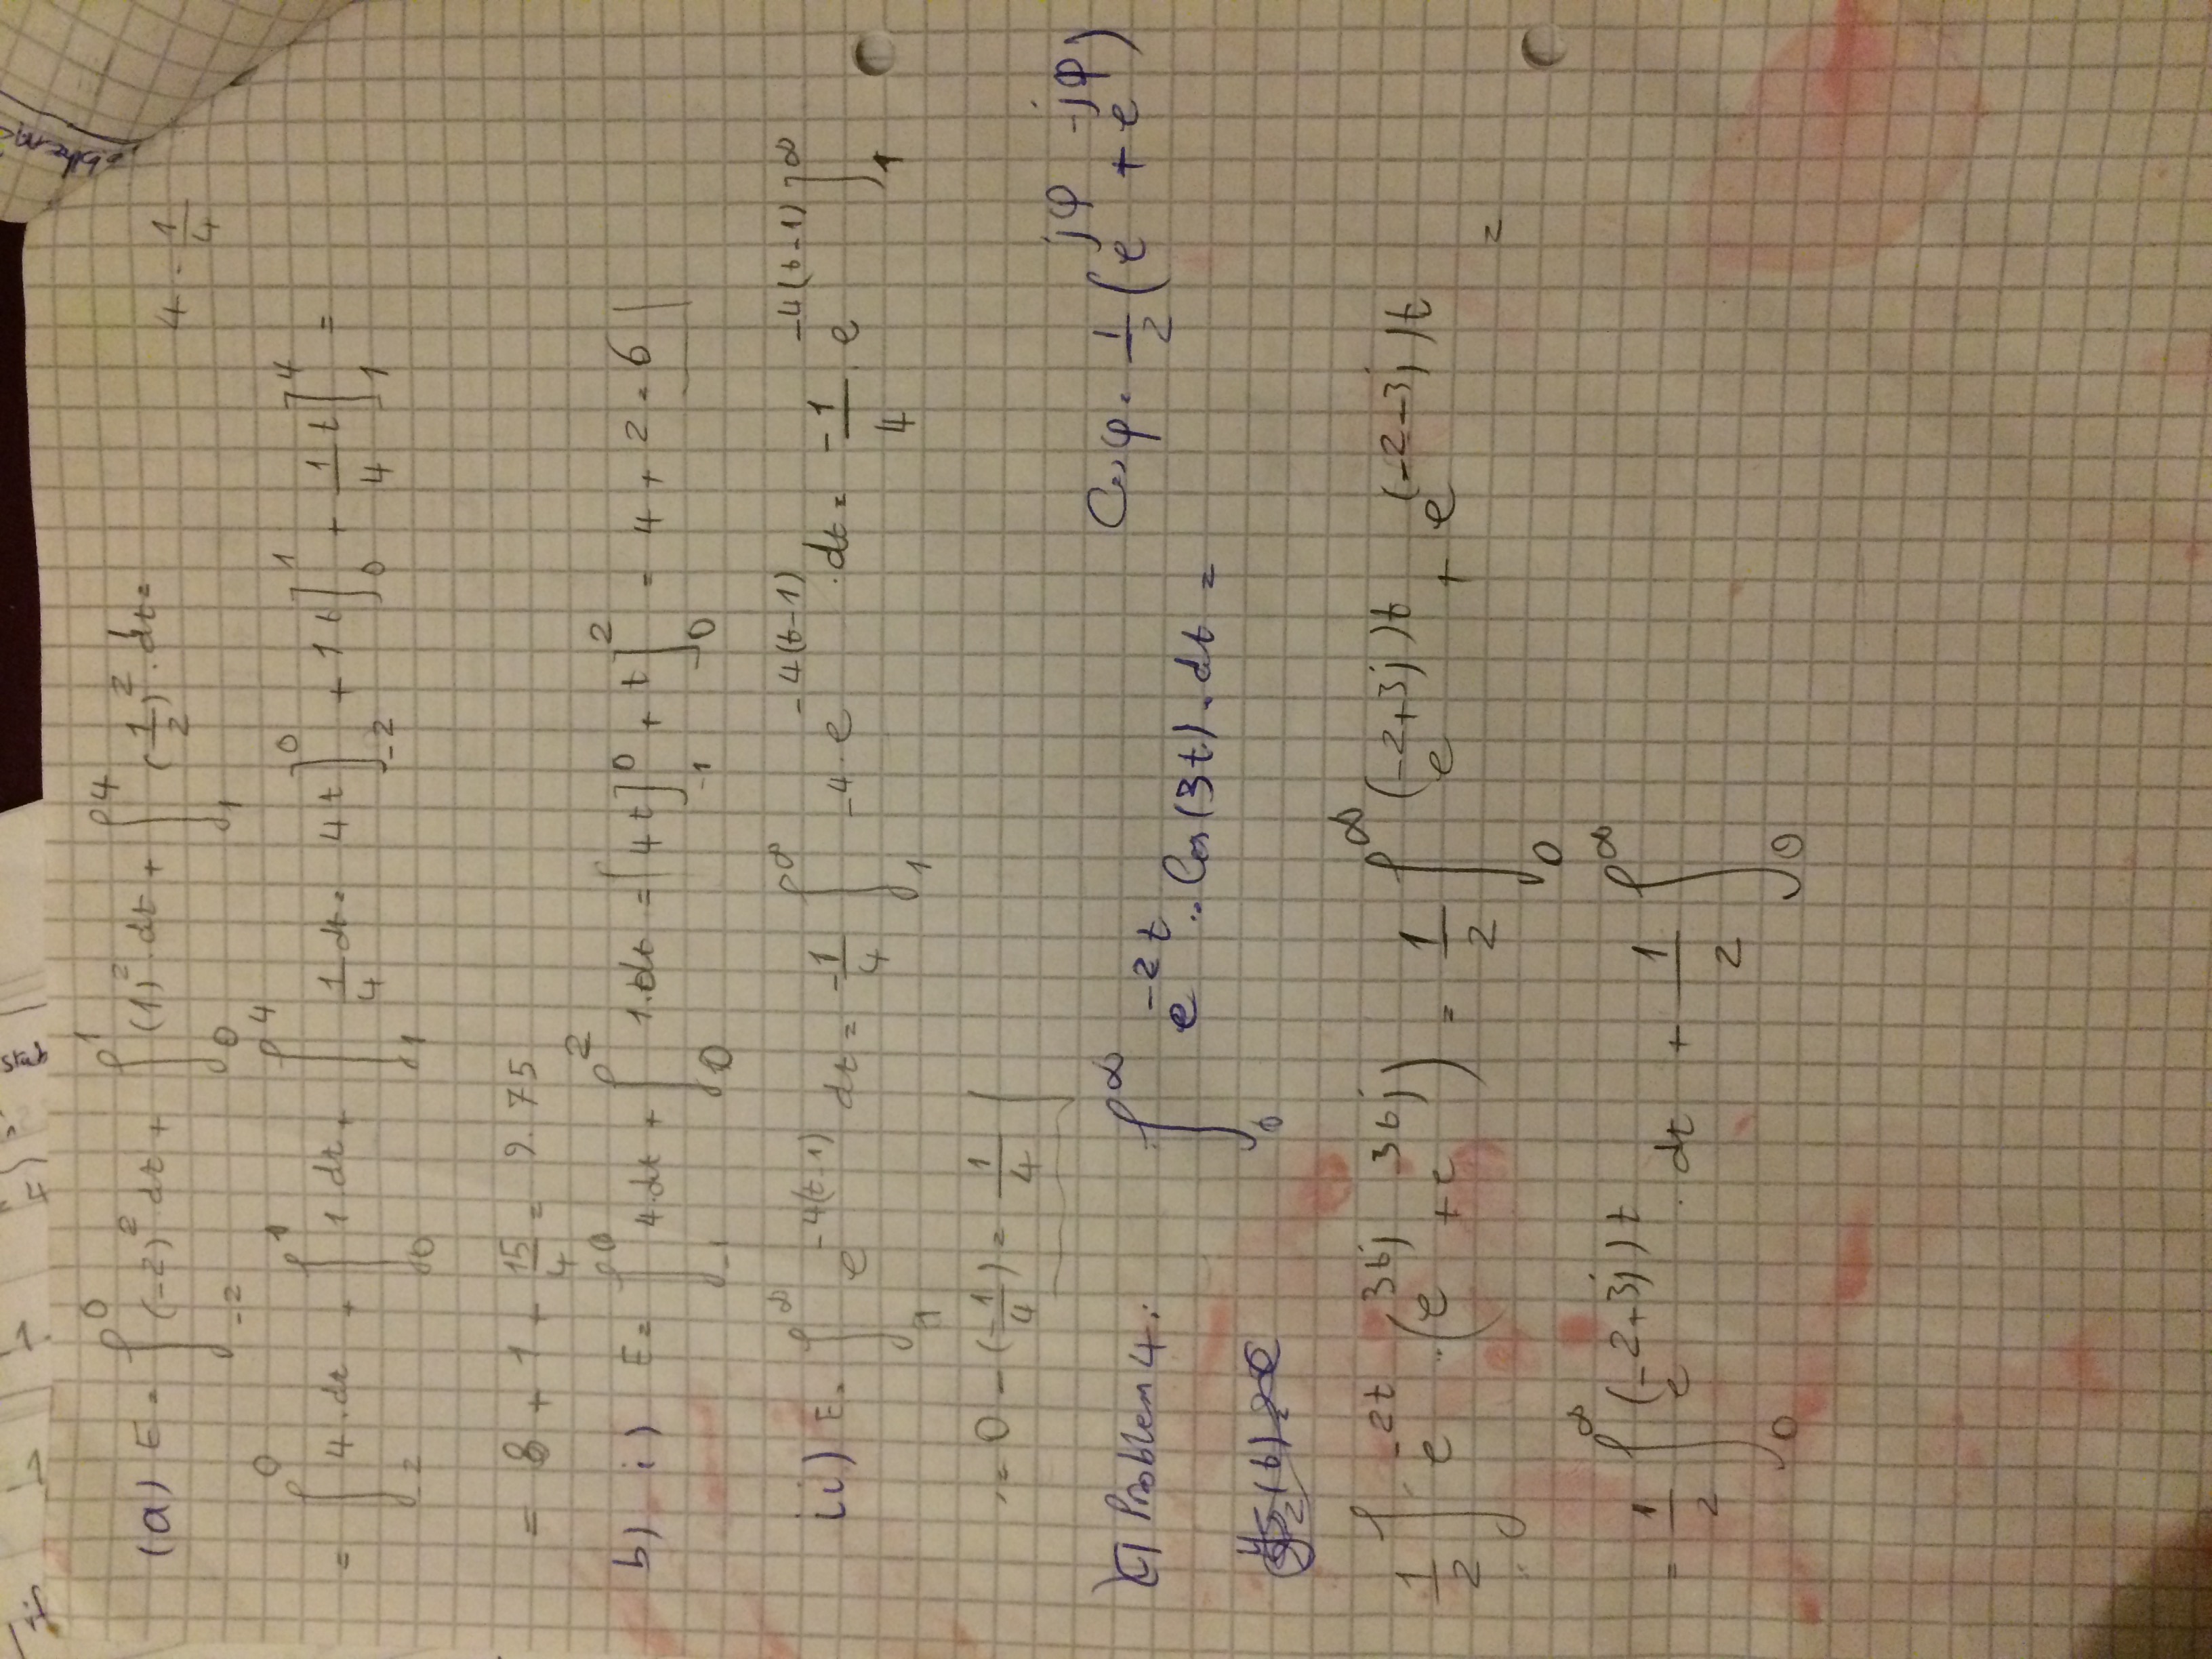 stab
(a) E = ∫_{-2}^{0} (-2)^2 · dt + ∫_{0}^{1} (1)^2 · dt + ∫_{1}^{4} (1/2)^2 · dt =
4 - 1/4
= ∫_{-2}^{0} 4 · dt + ∫_{0}^{1} 1 · dt + ∫_{1}^{4} 1/4 dt = 4t]_{-2}^{0} + 1t]_{0}^{1} + 1/4 t]_{1}^{4} =
= 8 + 1 + 15/4 = 9.75
b) i) E = ∫_{-1}^{0} 4·dt + ∫_{0}^{2} 1·dt = [4t]_{-1}^{0} + t]_{0}^{2} = 4 + 2 = 6
ii) E = ∫_{1}^{∞} e^{-4(t-1)} dt = -1/4 ∫_{1}^{∞} -4 · e^{-4(t-1)} · dt = -1/4 · e^{-4(t-1)}]_{1}^{∞}
= 0 - (-1/4) = 1/4
c) Problem 4: ∫_{0}^{∞} e^{-2t} · Cos(3t) · dt =
Cos φ = 1/2 (e^{jφ} + e^{-jφ})
1/2 ∫ e^{-2t} · (e^{3tj} + e^{-3tj}) = 1/2 ∫_{0}^{∞} e^{(-2+3j)t} + e^{(-2-3j)t} =
= 1/2 ∫_{0}^{∞} e^{(-2+3j)t} · dt + 1/2 ∫_{0}^{∞}